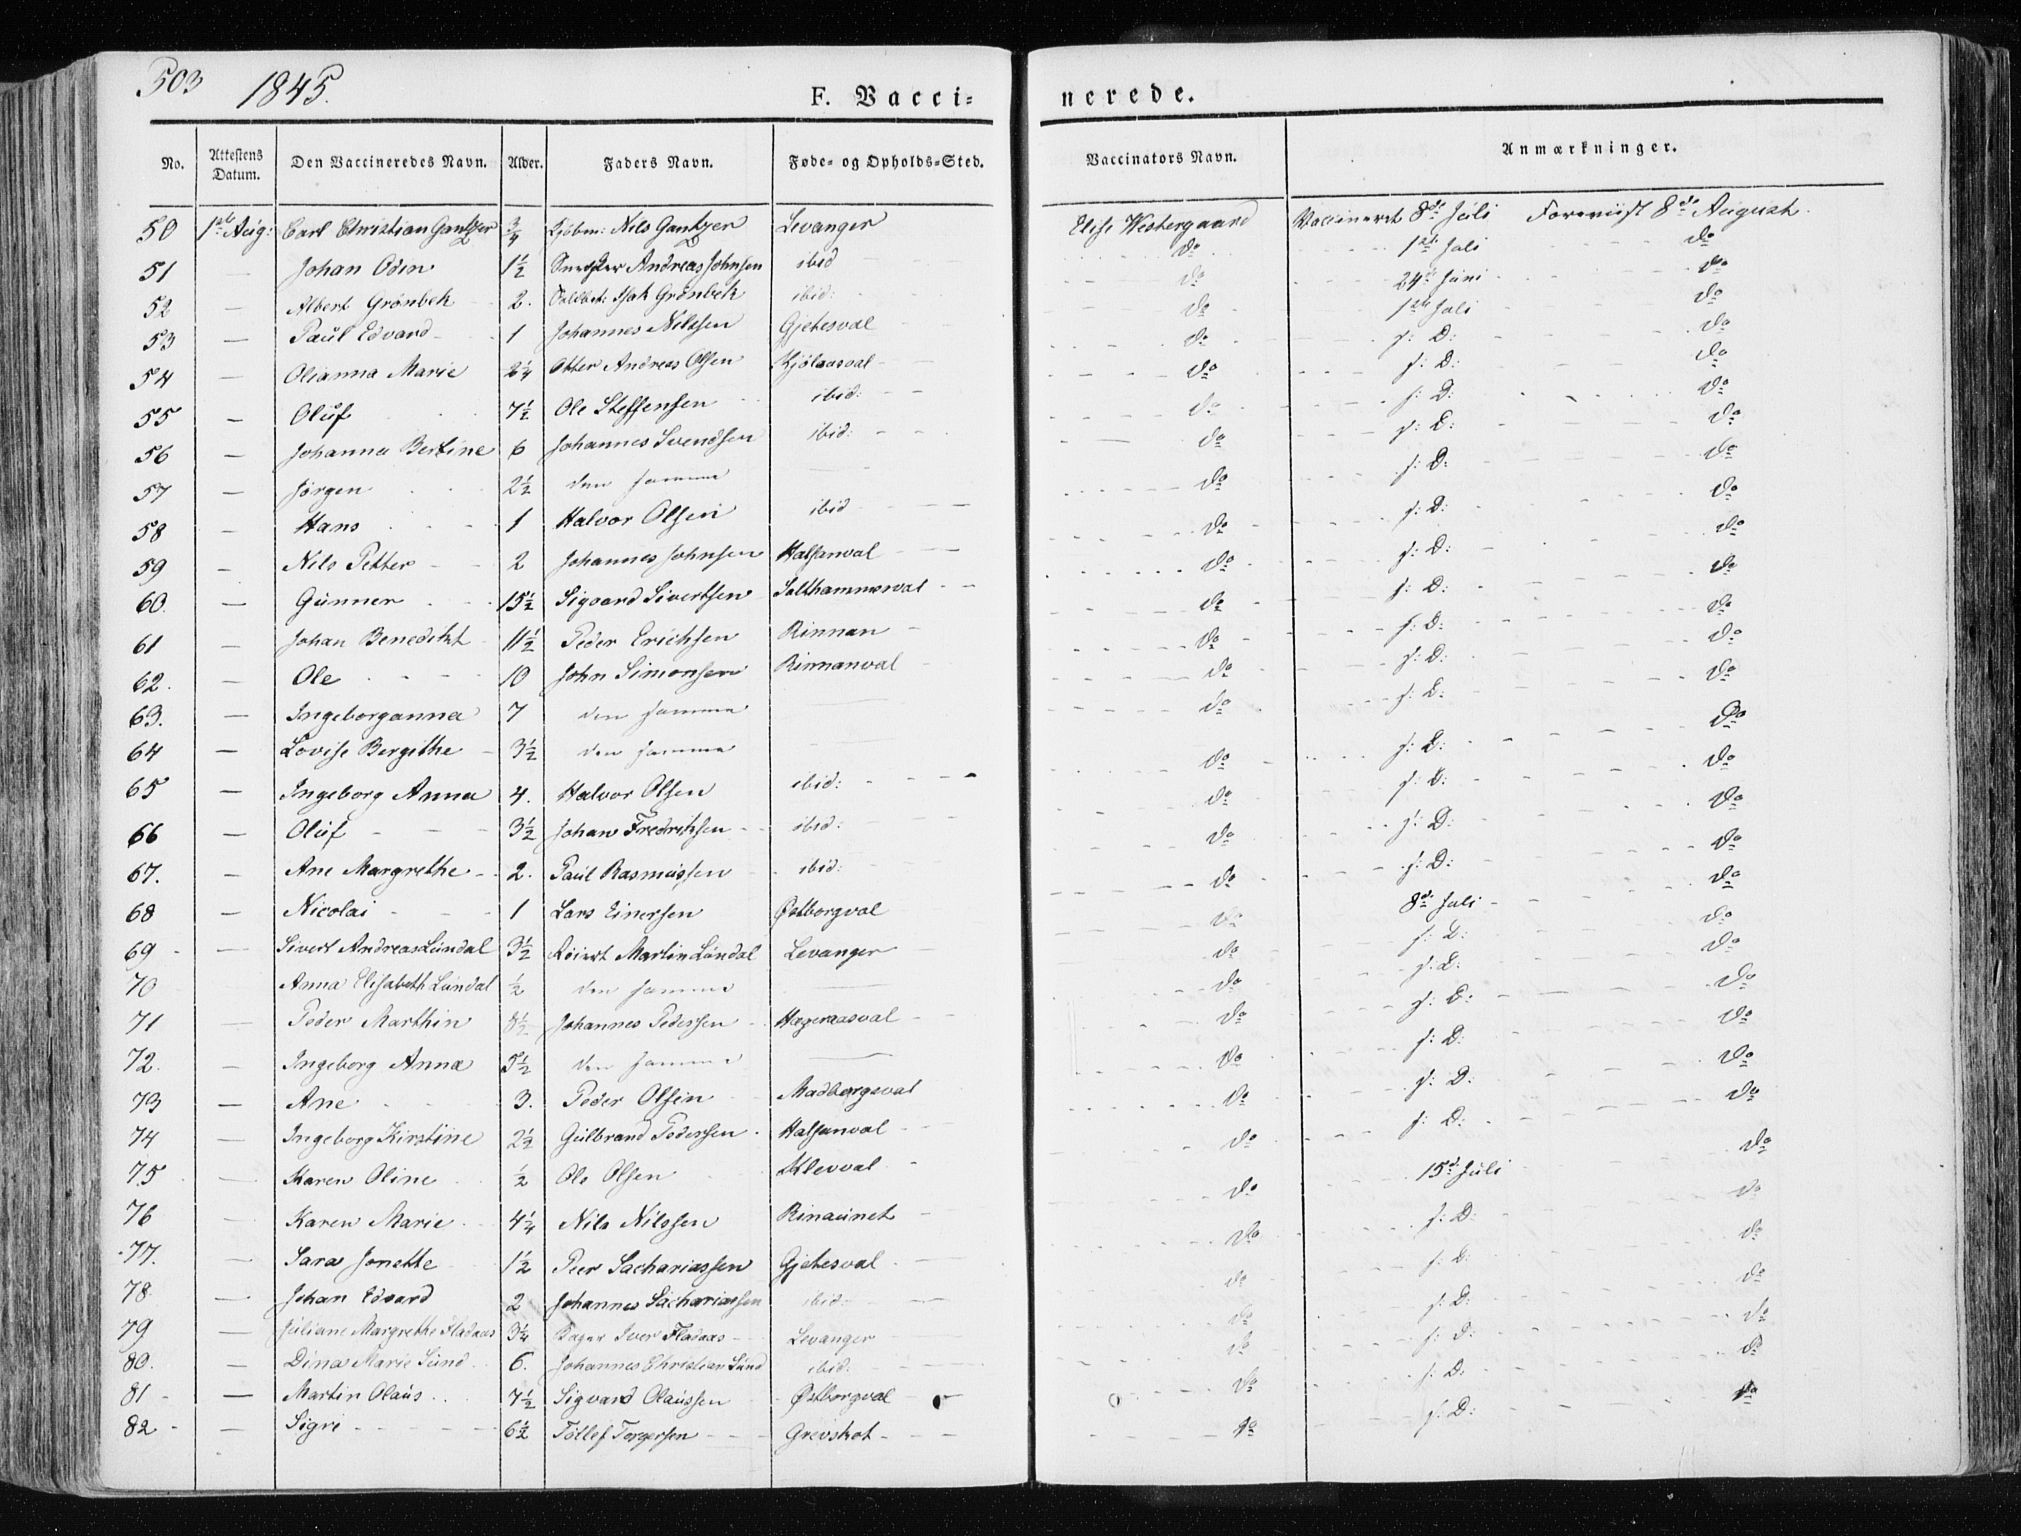 503 1845. F. Vacci= nerede.
No. Attestens Datum. Den Vaccineredes Navn. Alder. Faders Navn. Føde- og Opholds-Sted. Vaccinators Navn. Anmærkninger.
50 1ste Aug: Carl Christian Gantzer 3/4 Kjøbm: Nils Gantzer Levanger Elise Westergaard Vaccineret 8de Juli Foreviist 8de August.
51 — Johan Odin 1 1/2 Snedker Andreas Johnsen ibid do 1ste Juli do
52 — Albert Grönbek 2. Isak Grönbek ibid: do 24de Juni do
53 — Paul Edvard 1 Johannes Nilssen Gjetesval do 1ste Juli do
54 — Olianna Marie 2 1/4 Otter Andreas Olsen Kjölaasval do s: D: do
55 — Oluf 7 1/2 Ole Steffensen ibid: do s: D: do
56 — Johanna Bertine 6 Johannes Svendsen ibid: do s: D: do
57 — Jörgen 2 1/2 den samme — do s: D: do
58 — Hans 1 Halvor Olsen ibid do s: D: do
59 — Nils Petter 2 Johannes Johnsen Halsanval do s: D: do
60. — Gunner 15 1/2 Sigvard Sivertsen Salthammerval do s: D: do
61 — Johan Benedikt 11 1/2 Peder Erichsen Rinnan do s: D: do
62. — Ole 10 John Simonsen Rinnanval do s: D: do
63. — Ingeborganna 7 den samme — do s: D: do
64 — Lovise Bergithe 3 1/2 den samme — do s: D: do
65 — Ingeborg Anna 4. Halvor Olsen ibid: do s: D: do
66 — Oluf 3 1/2 Johan Fredriksen ibid: do s: D: do
67. — Ane Margrethe 2. Paul Rasmussen ibid: do s: D: do
68 — Nicolai 1 Lars Einersen Østborgval do 8de Juli do
69 — Sivert Andreas Lundal 3 1/2 Martin Lundal Levanger do s: D: do
70 Anna Elisabeth Lundal 1/2 den samme do s: D: do
71 — Peder Marthin 8 1/2 Johannes Pedersen Hageraasval do s: D: do
72. — Ingeborg Anna 5 1/2 den samme — do s: D: do
73 — Ane 3. Peder Olsen Madbergsval do s: D: do
74 — Ingeborg Kirstine 2 1/2 Gulbrand Pedersen Halsanval do s: D: do
75 — Karen Oline 1/2 Ole Olsen Klevval do 15de Juli do
76 — Karen Marie 4 1/4 Nils Nilssen Rinaunet do s: D: do
77. — Sara Jonette 1 1/2 Peer Sachariassen Gjetesval do s: D: do
78 — Johan Edvard 2 Johannes Sachariassen ibid: do s: D: do
79 — Juliane Margrethe Fladaas 3 1/4 Bager Iver Fladaas Levanger do s: D: do
80. — Dina Marie Sund 6. Johannes Christian Sund ibid: do s: D: do
81 — Martin Olaus 7 1/2 Sigvard Olaussen Østborgval do s: D: do
82 — Sigri 6 1/2 Töllef Torgersen Grevskot do s: D: